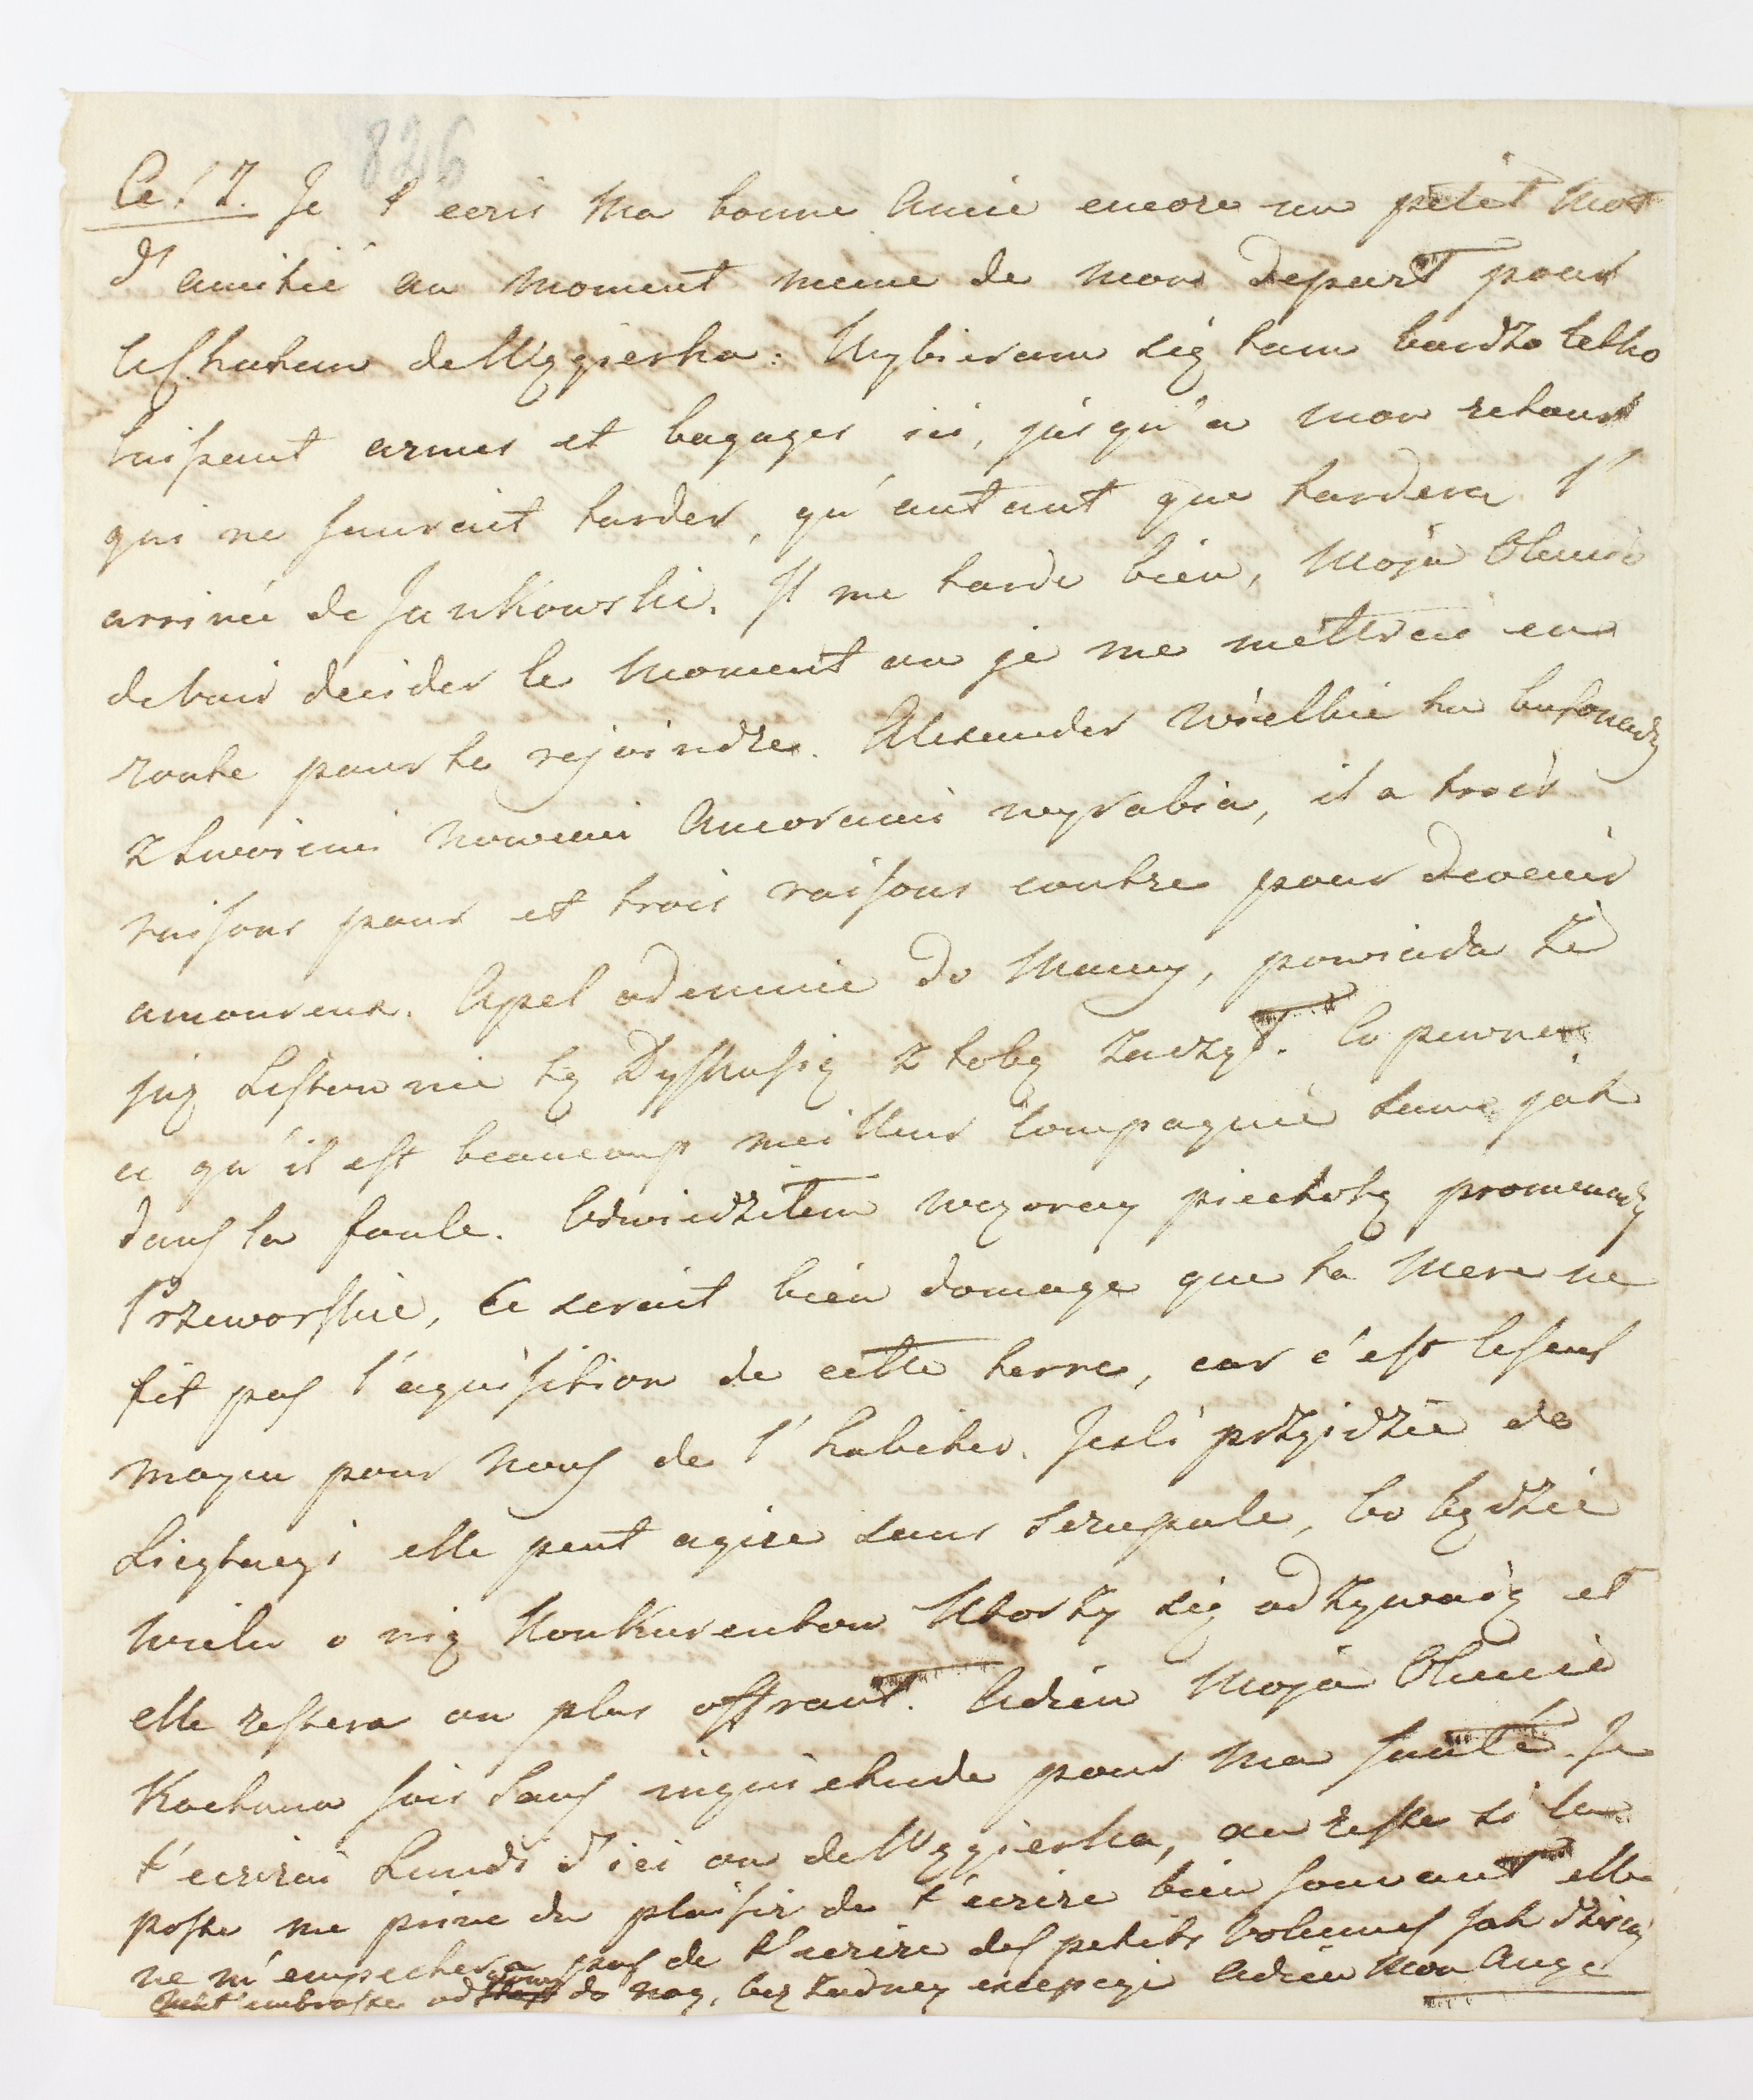 826
Ce 17. Je t'ecris Ma bonne Amie encore un petit Mot
d'amitié au moment meme de mon Depart pour
Leszhaham de Węgierka. Wybieram się tam bardzo letko
laissant armes et bagages ici, jusqu'a mon retour
qui ne saurait tarder, qu'autant que tardera l'
arrivée de Jankowski. Il me tarde bien, Moja Olesiu
de voir decider le Moment ou je me mettrai en
route pour te rejoindre. Alexander wielkie tu bufonady
z swoiemi nowemi Amorami wyrabia, il a trois
raisons pour et trois raisons contre pour devenir
amoureux. Apel odemnie do Mamy, powiada że
już listownie tę Dyskusię z tobą zaczął. Co pewna,
a qu'il est beaucoup meilleur Compagnie sam jak
dans la foule. Odwiedziłem wczoray piechotą promenady
Przeworskie, Ce serait bien domage que ta Mere ne
fit pas l'aquisition de cette terre, car c'est le seul
moyen pour nous de l'habiter. Jesli przyidzie do
Licytacyi elle peut agire sans Scrupule, bo będzie
wielu o nią Konkurentow Ktorzy się odzywaią et
elle restera au plus offrant. Adieu Moja Olesiu
Kochana sois sans inquietude pour Ma santé. Je
t'ecrirai Lundi d'ici ou de Węgierka, au reste si la
poste me prive du plaisir de t'ecrire bien souvant elle
ne m'empechera pas de t'ecrire des petits Volumes jak dzisiay
Je t'embrasse od do nog, bez żadney excepcyi Adieu Mon Ange